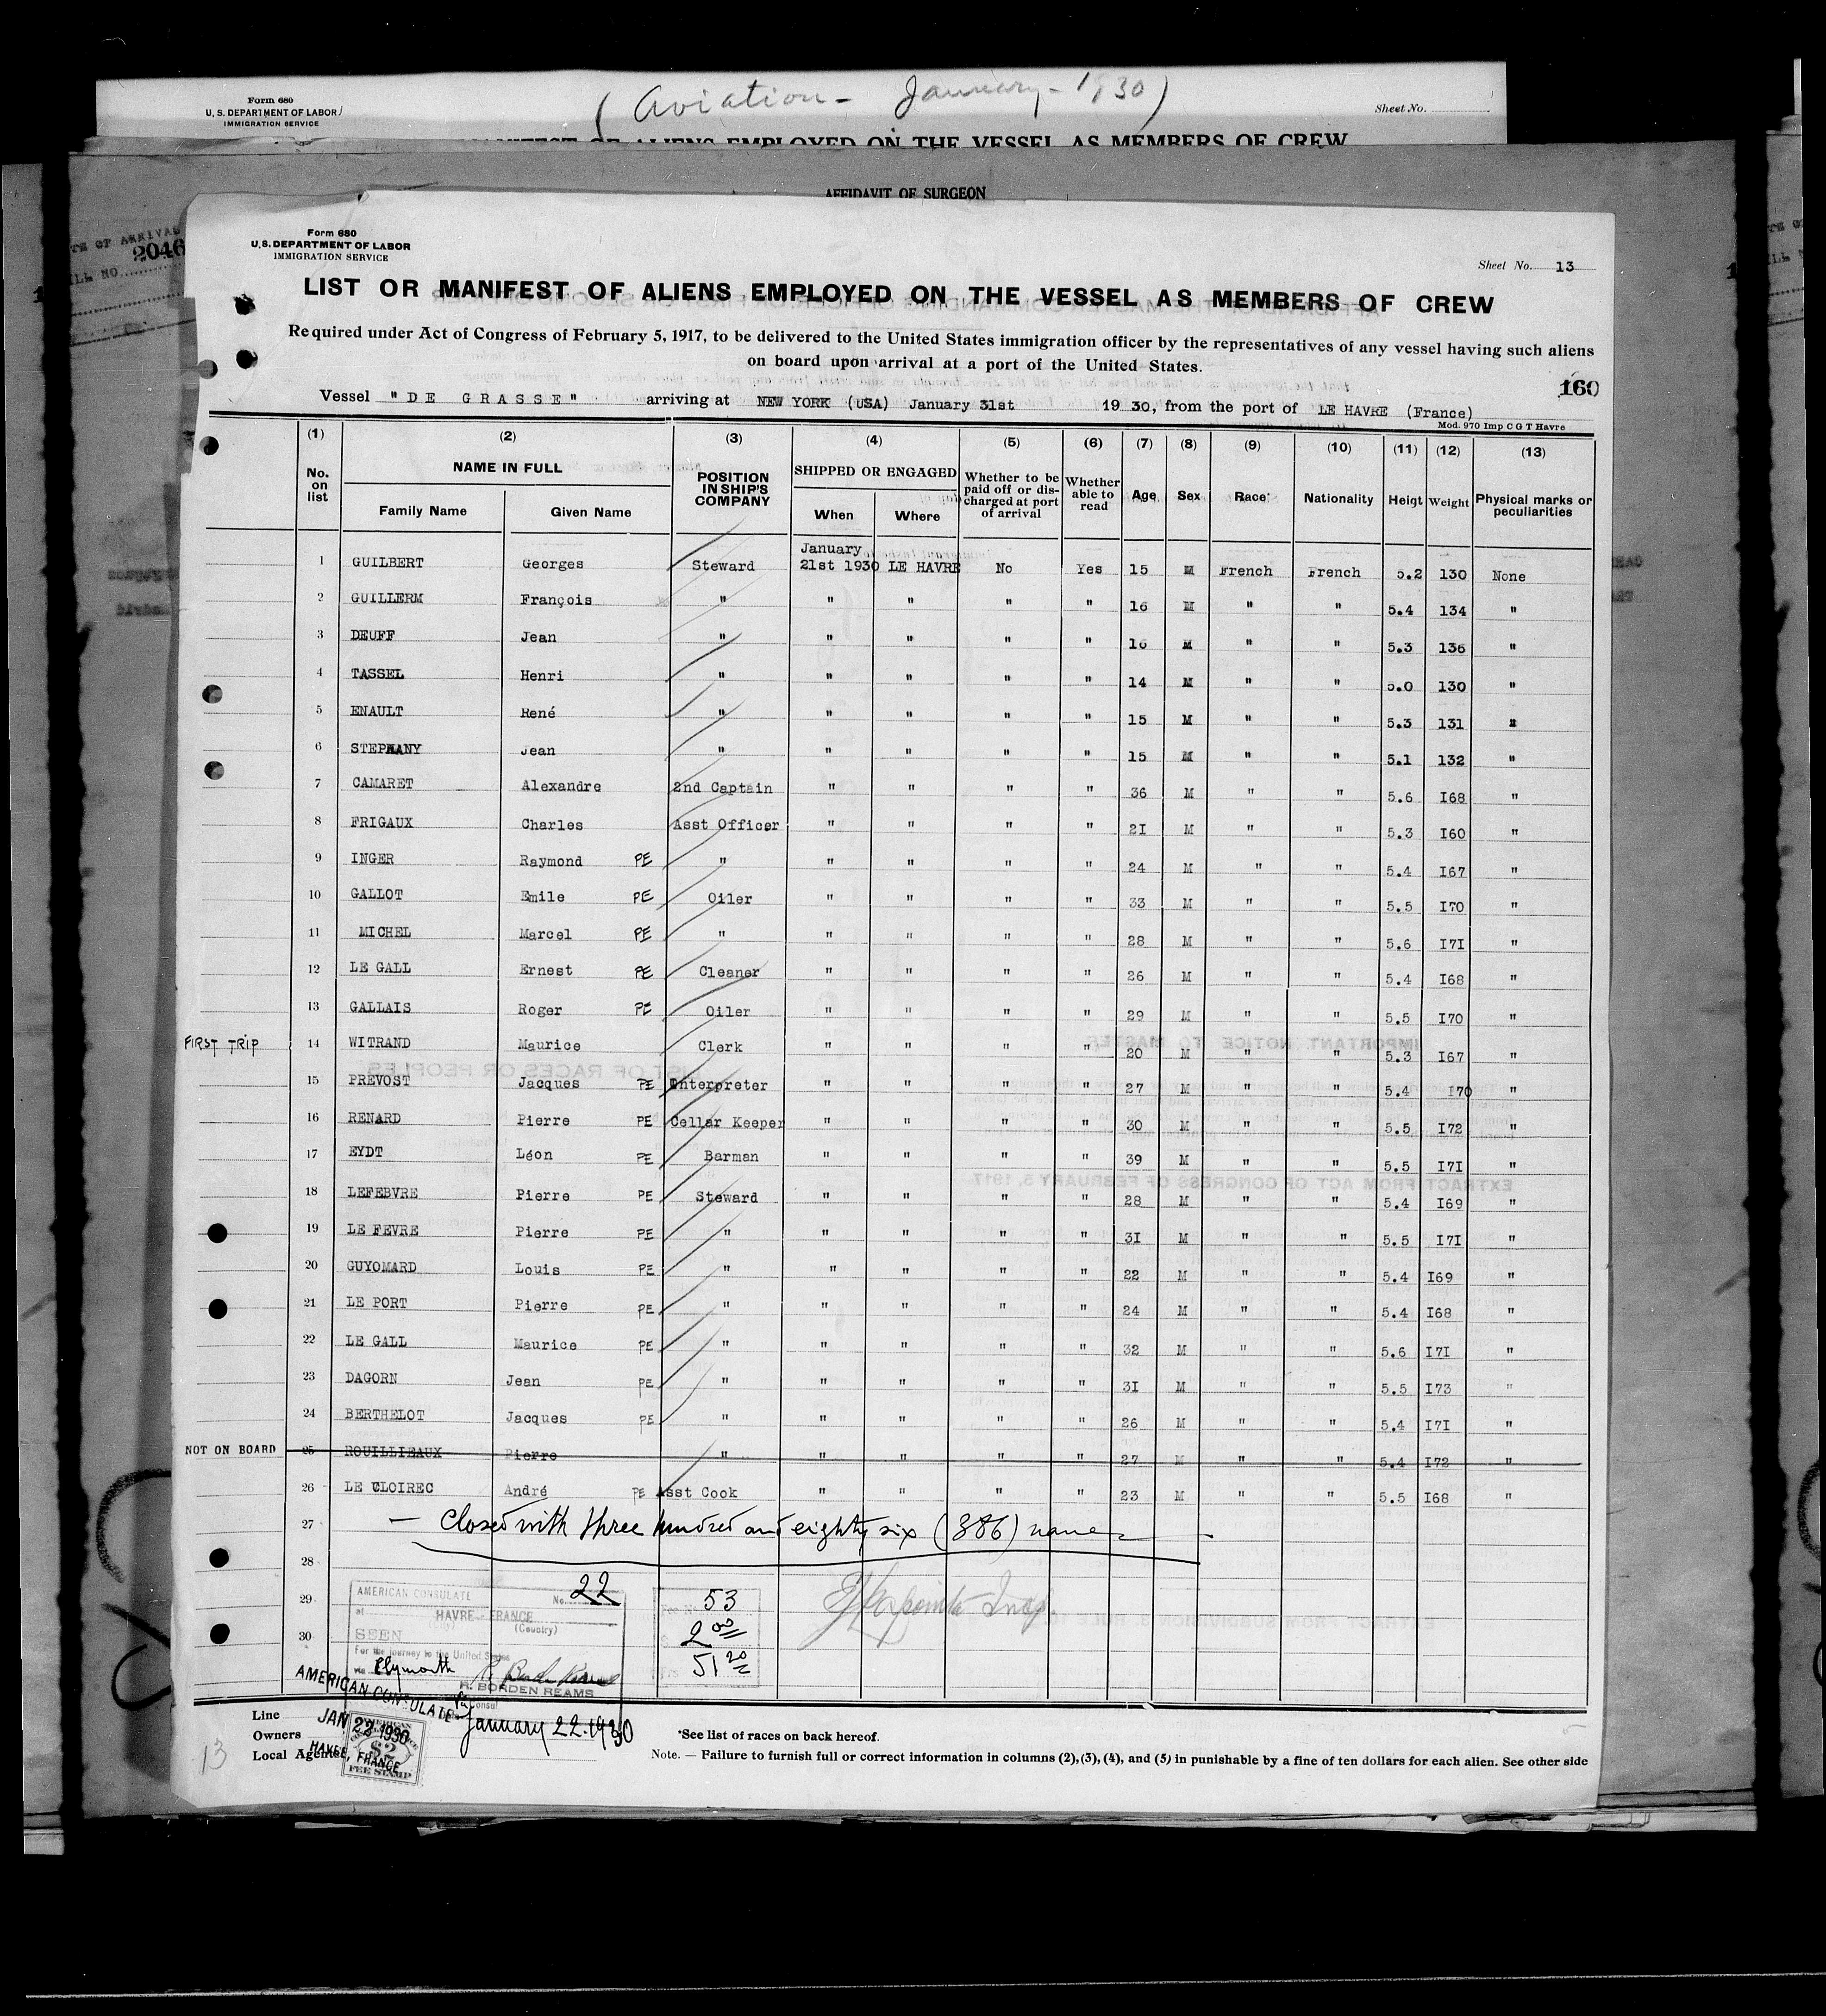 ( Aviation - January - 1930 )
Form 680
U. S. DEPARTMENT OF LABOR
IMMIGRATION SERVICE
Sheet No.
MANIFEST OF ALIENS EMPLOYED ON THE VESSEL AS MEMBERS OF CREW
AFFIDAVIT OF SURGEON
2046
Form 680
U.S. DEPARTMENT OF LABOR
IMMIGRATION SERVICE
Sheet No. 13
LIST OR MANIFEST OF ALIENS EMPLOYED ON THE VESSEL AS MEMBERS OF CREW
Required under Act of Congress of February 5, 1917, to be delivered to the United States immigration officer by the representatives of any vessel having such aliens
on board upon arrival at a port of the United States.
160
Vessel "DE GRASSE" arriving at NEW YORK (USA) January 31st 1930, from the port of LE HAVRE (France)
Mod. 970 Imp C G T Havre
(1) (2) (3) (4) (5) (6) (7) (8) (9) (10) (11) (12) (13)
No. on list NAME IN FULL Family Name Given Name POSITION IN SHIP'S COMPANY SHIPPED OR ENGAGED When Where Whether to be paid off or discharged at port of arrival Whether able to read Age Sex Race* Nationality Heigt Weight Physical marks or peculiarities
1 GUILBERT Georges Steward January 21st 1930 LE HAVRE No Yes 15 M French French 5.2 130 None
2 GUILLERM François " " " " " 16 M " " 5.4 134 "
3 DEUFF Jean " " " " " 16 M " " 5.3 136 "
4 TASSEL Henri " " " " " 14 M " " 5.0 130 "
5 ENAULT René " " " " " 15 M " " 5.3 131 "
6 STEPHANY Jean " " " " " 15 M " " 5.1 132 "
7 CAMARET Alexandre 2nd Captain " " " " 36 M " " 5.6 I68 "
8 FRIGAUX Charles Asst Officer " " " " 2I M " " 5.3 I60 "
9 INGER Raymond PE " " " " " 24 M " " 5.4 I67 "
10 GALLOT Emile PE Oiler " " " " 33 M " " 5.5 I70 "
11 MICHEL Marcel PE " " " " " 28 M " " 5.6 I7I "
12 LE GALL Ernest PE Cleaner " " " " 26 M " " 5.4 I68 "
13 GALLAIS Roger PE Oiler " " " " 29 M " " 5.5 I70 "
FIRST TRIP 14 WITRAND Maurice Clerk " " " " 20 M " " 5.3 I67 "
15 PREVOST Jacques PE Interpreter " " " " 27 M " " 5.4 I70 "
16 RENARD Pierre PE Cellar Keeper " " " " 30 M " " 5.5 I72 "
17 EYDT Léon PE Barman " " " " 39 M " " 5.5 I7I "
18 LEFEBVRE Pierre PE Steward " " " " 28 M " " 5.4 I69 "
19 LE FEVRE Pierre PE " " " " " 3I M " " 5.5 I7I "
20 GUYOMARD Louis PE " " " " " 22 M " " 5.4 I69 "
21 LE PORT Pierre PE " " " " " 24 M " " 5.4 I68 "
22 LE GALL Maurice PE " " " " " 32 M " " 5.6 I7I "
23 DAGORN Jean PE " " " " " 3I M " " 5.5 I73 "
24 BERTHELOT Jacques PE " " " " " 26 M " " 5.4 I7I "
NOT ON BOARD 25 ROUILLIEAUX Pierre " " " " " 27 M " " 5.4 I72 "
26 LE CLOIREC André PE Asst Cook " " " " 23 M " " 5.5 I68 "
27 — Closed with three hundred and eighty six (386) names —
28
29
30
AMERICAN CONSULATE No. 22
at HAVRE - FRANCE
(Country)
SEEN
For the journey to the United States
via Plymouth
R. BORDEN REAMS
Consul
January 22. 1930
53
2 00
51 20
AMERICAN CONSULATE
JAN 22 1930
HAVRE, FRANCE
$2
FEE STAMP
Line
Owners
Local Agents
13
*See list of races on back hereof.
Note. — Failure to furnish full or correct information in columns (2), (3), (4), and (5) in punishable by a fine of ten dollars for each alien. See other side